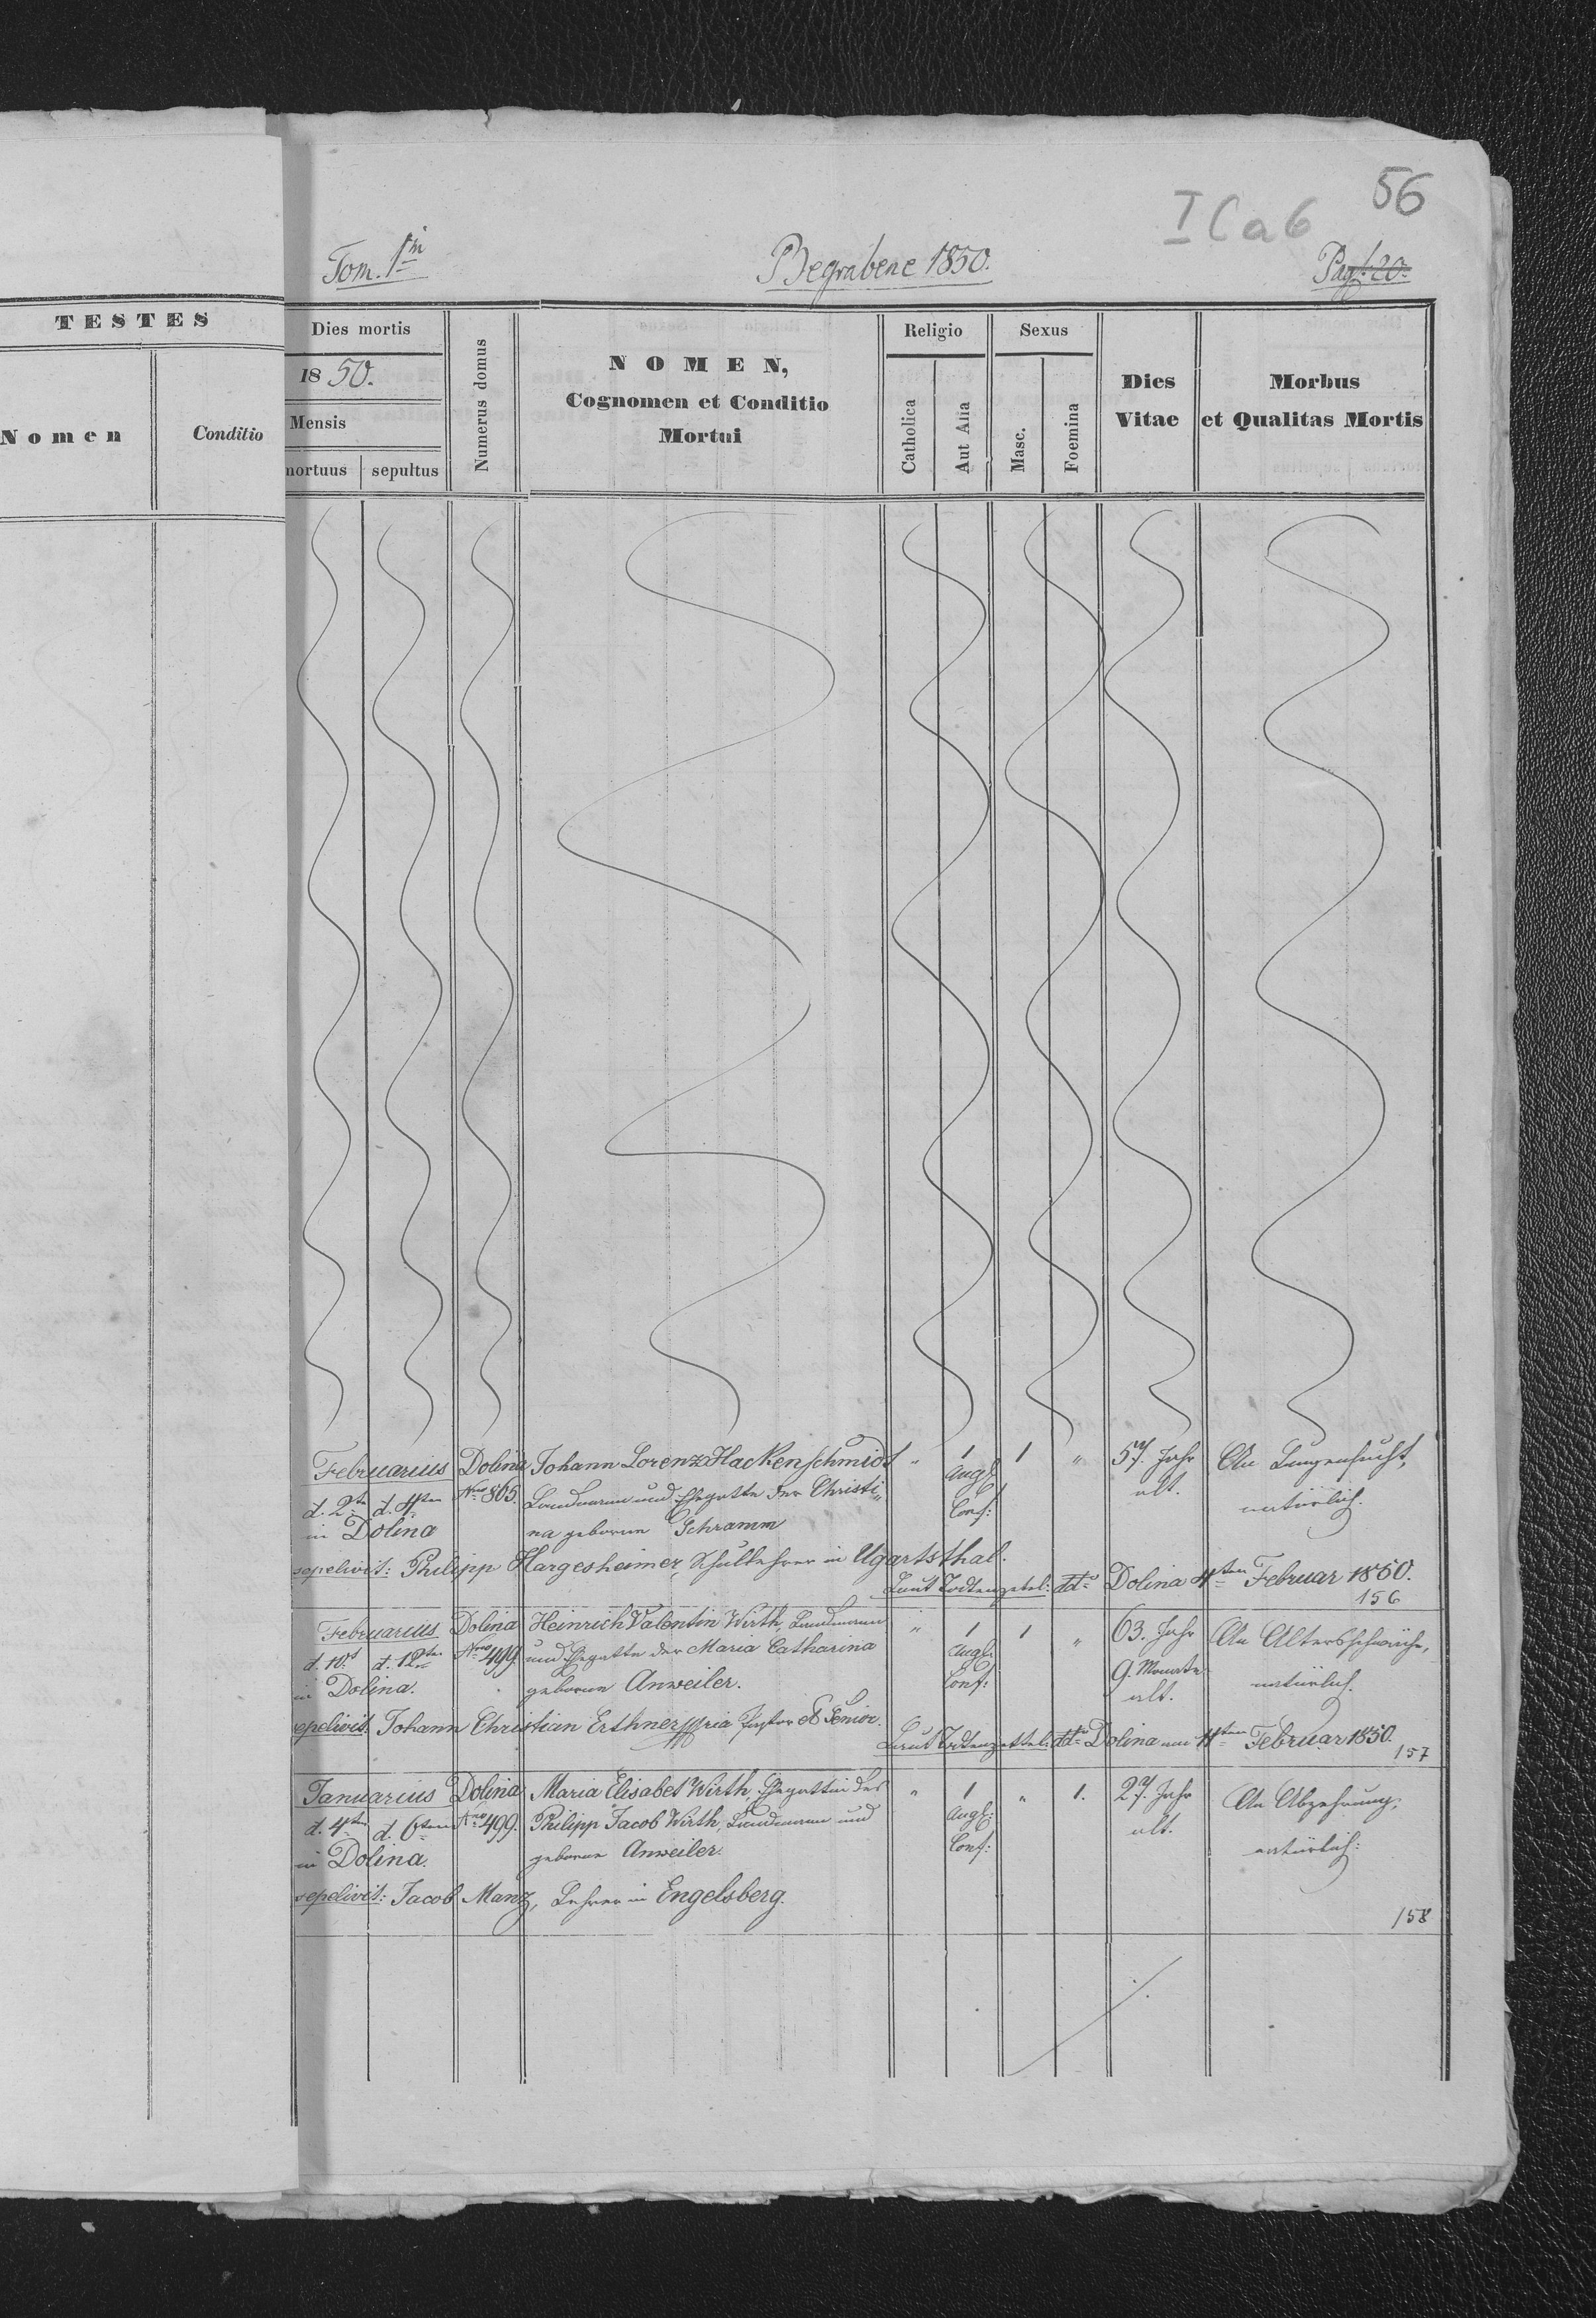 56
I C a 6
Tom. 1m
Begrabene 1850.
Pag: 20.
TESTES
Nomen
Conditio
Dies mortis
1850.
Mensis
mortuus
sepultus
Numerus domus
NOMEN,
Cognomen et Conditio
Mortui
Religio
Catholica
Aut Alia
Sexus
Masc.
Foemina
Dies
Vitae
Morbus
et Qualitas Mortis
Februarius Dolina Johann Lorenz Hackenschmidt " 1 1 " 57. Jahr An Lungensucht,
d. 2te d. 4ten Nro 865. Landmann und Ehegatte der Christi= Augl. alt. natürlich.
in Dolina na geborne Schramm Conf:
sepelivit: Philipp Hargesheimer, Schullehrer in Ugartsthal.
Laut Todtenzetel: ddo Dolina 4ten Februar 1850.
156
Februarius Dolina Heinrich Valentin Wirth, Landmann " 1 1 " 63. Jahr An Altersschwäche,
d. 10t d. 12ten Nro 499. und Ehegatte der Maria Catharina Augl. 9. Monate natürlich.
in Dolina. geborne Anweiler. Conf: alt.
sepelivit. Johann Christian Erthner Pastor & Senior.
Laut Todtenzettel: ddo Dolina am Februar 1850.
157
Januarius Dolina Maria Elisabet Wirth, Ehegattin des " 1 " 1. 27. Jahr An Abzehrung,
d. 4te d. 6ten Nro 499. Philipp Jacob Wirth, Landmann und Augl: alt. natürlich:
in Dolina. geborne Anweiler. Conf:
sepelivit: Jacob Manz, Lehrer in Engelsberg.
158